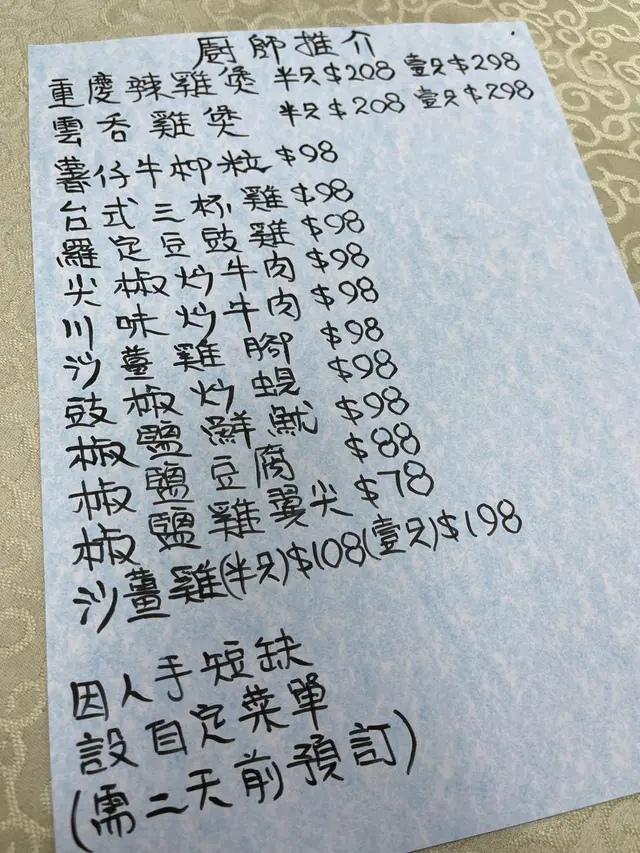 廚師推介
重慶辣雞煲 半只$208 壹只$298
雲吞雞煲 半只$208 壹只$298
薯仔牛柳粒 $98
台式三杯雞 $98
羅定豆豉雞 $98
尖椒炒牛肉 $98
川味炒牛肉 $98
沙薑雞腳 $98
豉椒炒蜆 $98
椒鹽鮮魷 $98
椒鹽豆腐 $88
椒鹽雞翼尖 $78
沙薑雞(半只)$108(壹只)$198
因人手短缺
設自定菜單
(需二天前預訂)